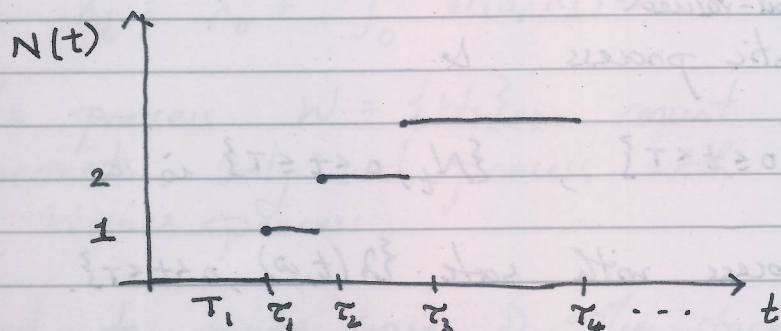 N(t)
2
1
T₁ τ₁ τ₂ τ₃ τ₄ .... t